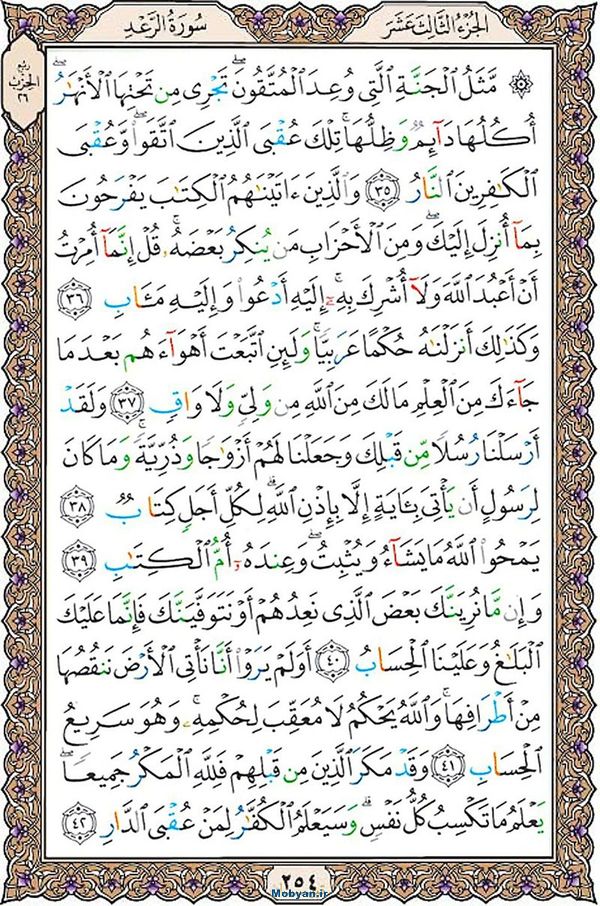 سُورَةُ الرَّعْدِ
الجُزْءُ الثَّالِثَ عَشَرَ
رُبْعُ
الحِزْبِ
٢٦
۞ مَّثَلُ الْجَنَّةِ الَّتِي وُعِدَ الْمُتَّقُونَ ۖ تَجْرِي مِن تَحْتِهَا الْأَنْهَٰرُ ۖ
أُكُلُهَا دَآئِمٌ وَظِلُّهَا ۚ تِلْكَ عُقْبَى الَّذِينَ اتَّقَوا۟ ۖ وَّعُقْبَى
الْكَٰفِرِينَ النَّارُ ٣٥ وَالَّذِينَ ءَاتَيْنَٰهُمُ الْكِتَٰبَ يَفْرَحُونَ
بِمَآ أُنزِلَ إِلَيْكَ ۖ وَمِنَ الْأَحْزَابِ مَن يُنكِرُ بَعْضَهُۥ ۚ قُلْ إِنَّمَآ أُمِرْتُ
أَنْ أَعْبُدَ اللَّهَ وَلَآ أُشْرِكَ بِهِۦٓ ۚ إِلَيْهِ أَدْعُوا۟ وَإِلَيْهِ مَـَٔابِ ٣٦
وَكَذَٰلِكَ أَنزَلْنَٰهُ حُكْمًا عَرَبِيًّا ۚ وَلَئِنِ اتَّبَعْتَ أَهْوَآءَهُم بَعْدَ مَا
جَآءَكَ مِنَ الْعِلْمِ مَا لَكَ مِنَ اللَّهِ مِن وَلِيٍّ وَلَا وَاقٍ ٣٧ وَلَقَدْ
أَرْسَلْنَا رُسُلًا مِّن قَبْلِكَ وَجَعَلْنَا لَهُمْ أَزْوَٰجًا وَذُرِّيَّةً ۚ وَمَا كَانَ
لِرَسُولٍ أَن يَأْتِيَ بِـَٔايَةٍ إِلَّا بِإِذْنِ اللَّهِ ۗ لِكُلِّ أَجَلٍ كِتَابٌ ٣٨
يَمْحُوا۟ اللَّهُ مَا يَشَآءُ وَيُثْبِتُ ۖ وَعِندَهُۥٓ أُمُّ الْكِتَٰبِ ٣٩
وَإِن مَّا نُرِيَنَّكَ بَعْضَ الَّذِي نَعِدُهُمْ أَوْ نَتَوَفَّيَنَّكَ فَإِنَّمَا عَلَيْكَ
الْبَلَٰغُ وَعَلَيْنَا الْحِسَابُ ٤٠ أَوَلَمْ يَرَوْا۟ أَنَّا نَأْتِي الْأَرْضَ نَنقُصُهَا
مِنْ أَطْرَافِهَا ۚ وَاللَّهُ يَحْكُمُ لَا مُعَقِّبَ لِحُكْمِهِۦ ۚ وَهُوَ سَرِيعُ
الْحِسَابِ ٤١ وَقَدْ مَكَرَ الَّذِينَ مِن قَبْلِهِمْ فَلِلَّهِ الْمَكْرُ جَمِيعًا ۖ
يَعْلَمُ مَا تَكْسِبُ كُلُّ نَفْسٍ ۗ وَسَيَعْلَمُ الْكُفَّٰرُ لِمَنْ عُقْبَى الدَّارِ ٤٢
٢٥٤
Mobyan.ir